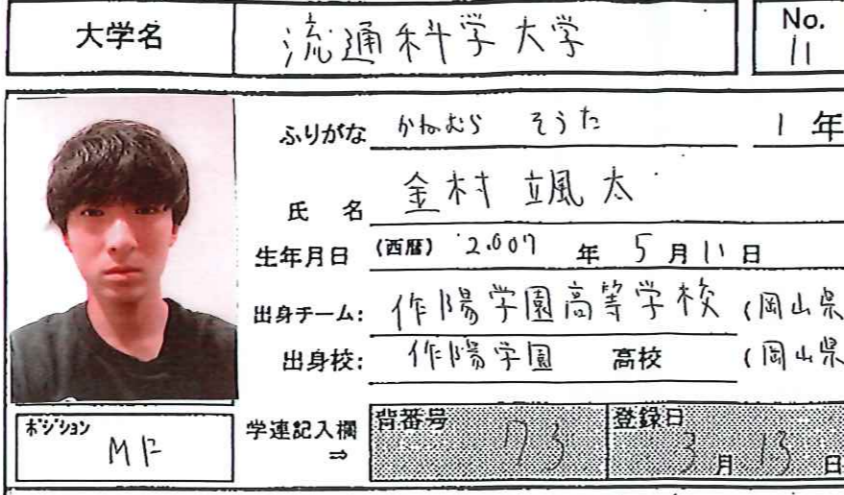 大学名 流通科学大学 No. 11
ふりがな かねむら そうた 1年
氏名 金村 颯太
生年月日 (西暦) 2007年 5月11日
出身チーム: 作陽学園高等学校 (岡山県
出身校: 作陽学園 高校 (岡山県
ポジション MF 学連記入欄⇒ 背番号 73 登録日 3月13日